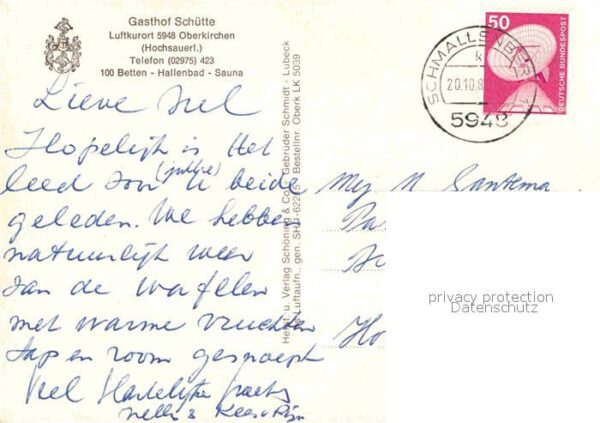 Gasthof Schütte
Luftkurort 5948 Oberkirchen
(Hochsauerl.)
Telefon (02975) 423
100 Betten - Hallenbad - Sauna
50
DEUTSCHE BUNDESPOST
SCHMALLENBERG 1
20.10.8
5948
Lieve
Hopelijk is Het
leed
u beide
geleden. We hebben
natuurlijk weer
van de wafelen
met warme vruchten
en room gesnoept
Veel Hartelijke groeten
Nellie & Kees
Santema
Verlag Schöning & Co · Gebrüder Schmidt - Lübeck
Luftaufn. gen. SH
Bestellnr. Oberk LK 5039
privacy protection
Datenschutz